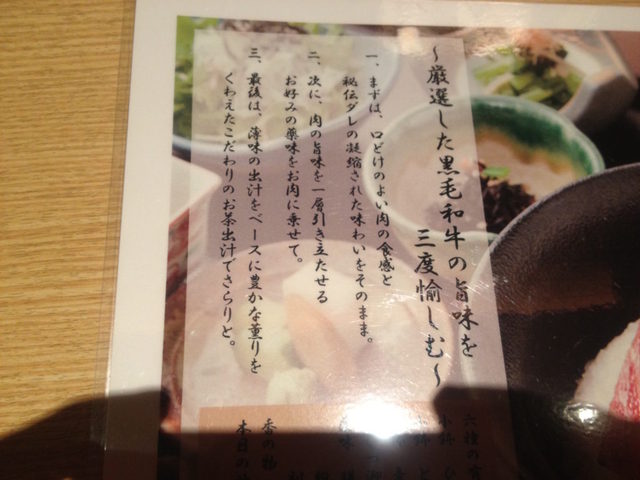 ～厳選した黒毛和牛の旨味を
三度愉しむ～
一、まずは、口どけのよい肉の食感と
秘伝ダレの凝縮された味わいをそのまま。
二、次に、肉の旨味を一層引き立たせる
お好みの薬味をお肉に乗せて。
三、最後は、薄味の出汁をベースに豊かな薫りを
くわえたこだわりのお茶出汁でさらりと。
六種の
小鉢
香の物
本日の